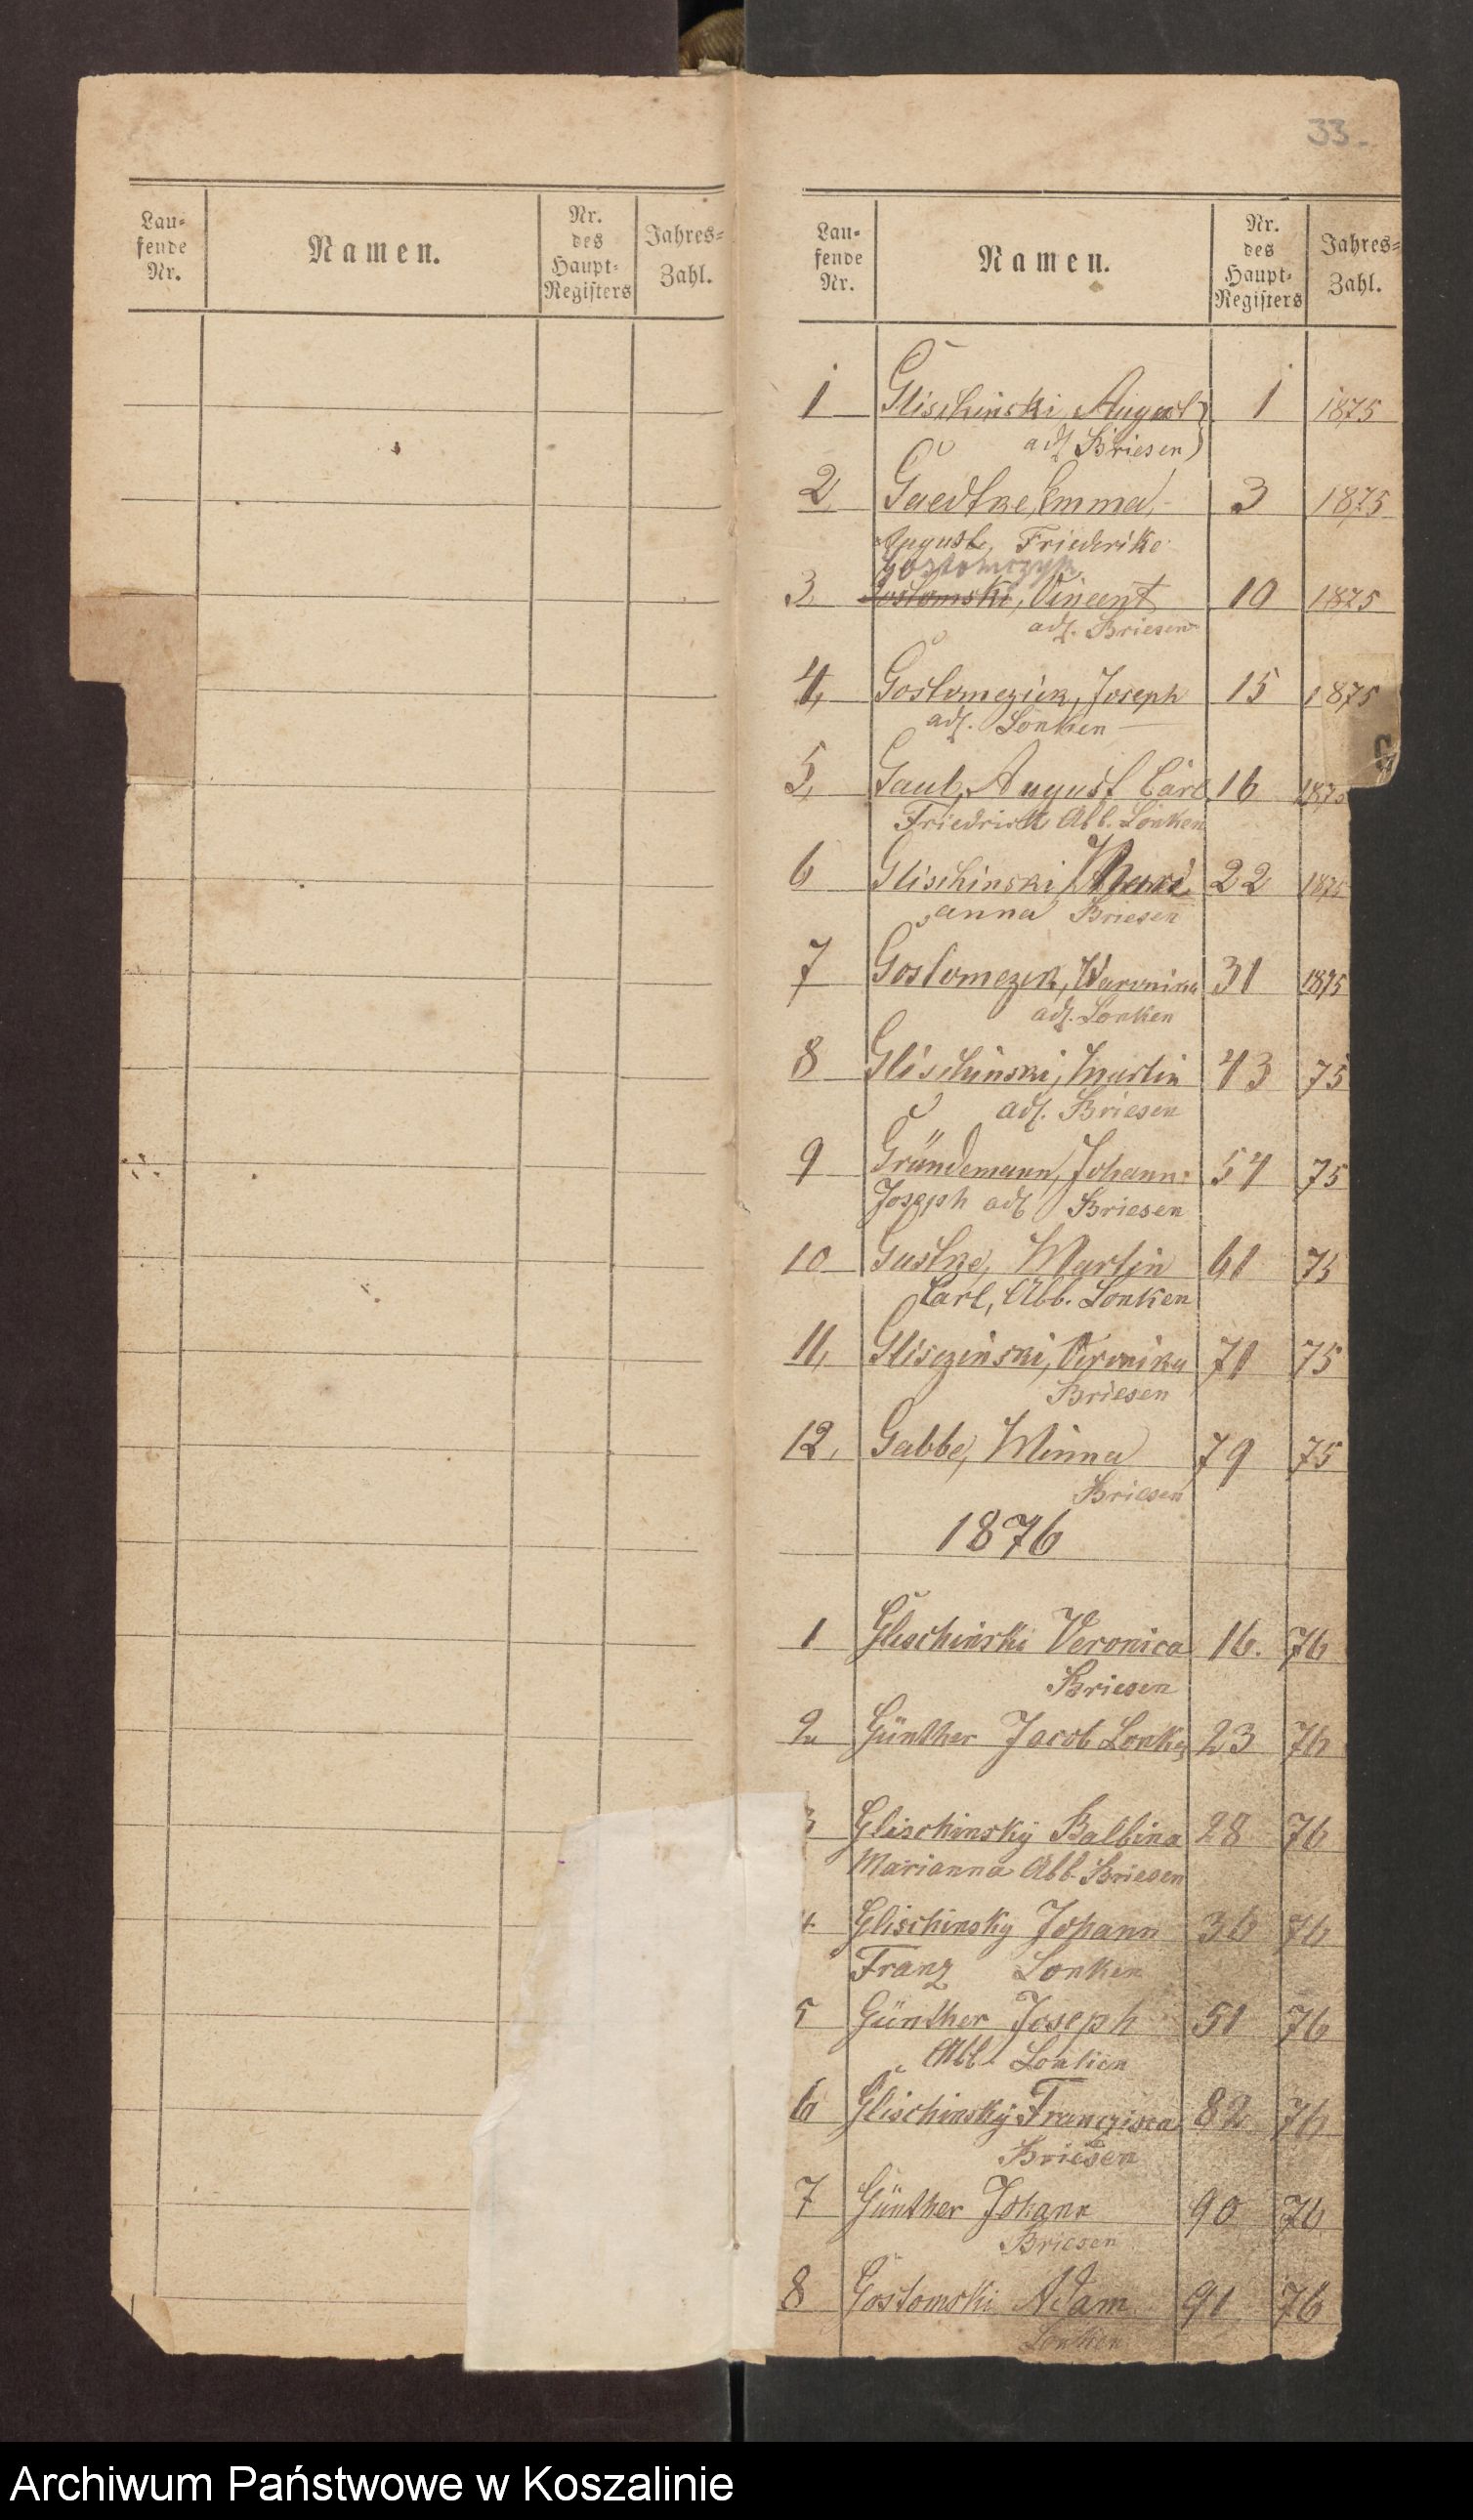 33.
Lau-
fende
Nr.
Namen.
Nr.
des
Haupt-
Registers
Jahres-
Zahl.
Lau-
fende
Nr.
Namen.
Nr.
des
Haupt-
Registers
Jahres-
Zahl.
1 Glischinski, August 1 1875
adl Briesen)
2, Gaedtke, Emma, 3 1875
Auguste, Friederike
Gostomczyk
3, Gostomski, Vincent 10 1875
adl. Briesen
4, Gostomczik, Joseph 15 1875
adl. Lonken
G
5, Gaul, August Carl 16 1875
Friedrich Abb. Lonken
6 Glischinski, Mari 22 1875
anna Briesen
7 Gostomczik, Waronika 31 1875
adl. Lonken
8 Glischinski, Martin 43 75
adl. Briesen
9 Gründemann, Johann 54 75
Joseph adl Briesen
10 Gustke, Martin 61 75
Carl, Abb. Lonken
11, Glisczinski, Veronika 71 75
Briesen
12, Gabbe, Minna 79 75
Briesen
1876
1 Glischinski Veronica 16. 76
Briesen
2 Günther Jacob Lonken 23 76
3 Glischinsky Balbina 28 76
Marianna Abb. Briesen
4 Glischinsky Johann 36 76
Franz Lonken
5 Günther Joseph 51 76
Abb. Lonken
6 Glischinsky Franzisca 82 76
Briesen
7 Günther Johann 90 76
Briesen
8 Gostomski Adam 91 76
Lonken
Archiwum Państwowe w Koszalinie